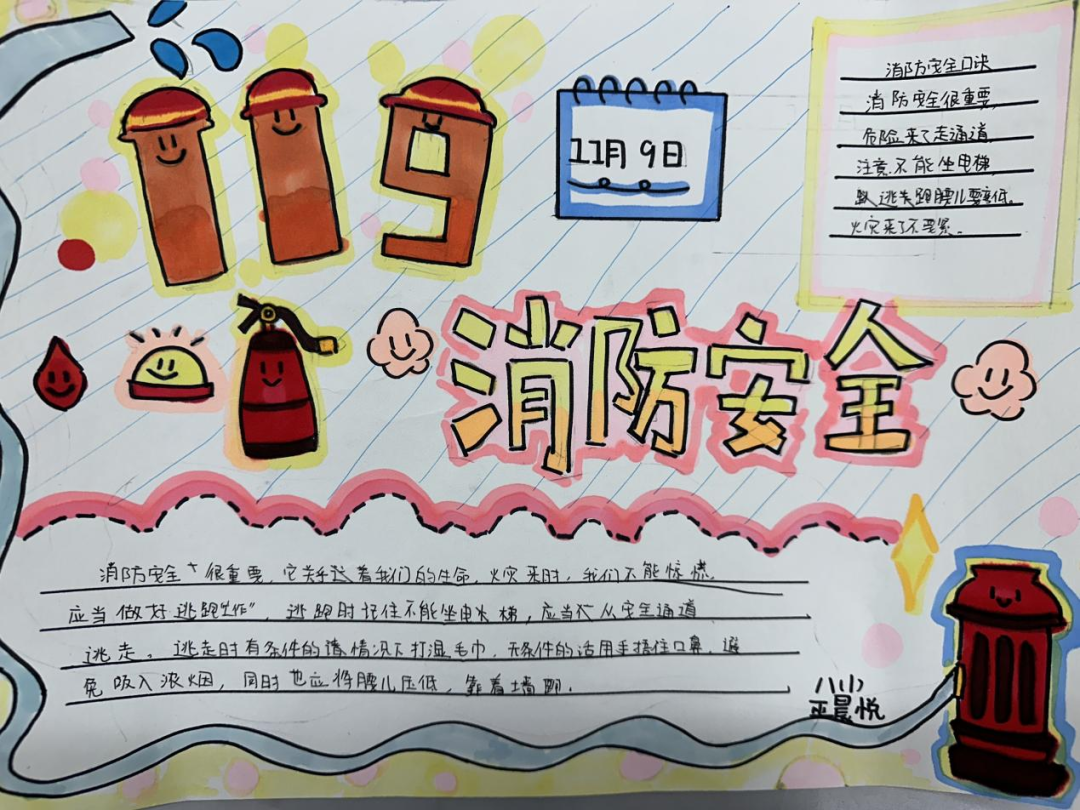 119
11月9日
消防安全口诀
消防安全很重要,
危险来了走通道.
注意不能坐电梯,
逃跑腰儿要低.
火灾来了不要紧.
消防安全
消防安全很重要,它关乎着我们的生命,火灾来时,我们不能惊慌.
应当做好逃跑",逃跑时记住不能坐电梯,应当从安全通道
逃走。逃走时有条件的情况下打湿毛巾,无条件的话用手捂住口鼻,避
免吸入浓烟,同时也应将腰儿压低,靠着墙
晨悦